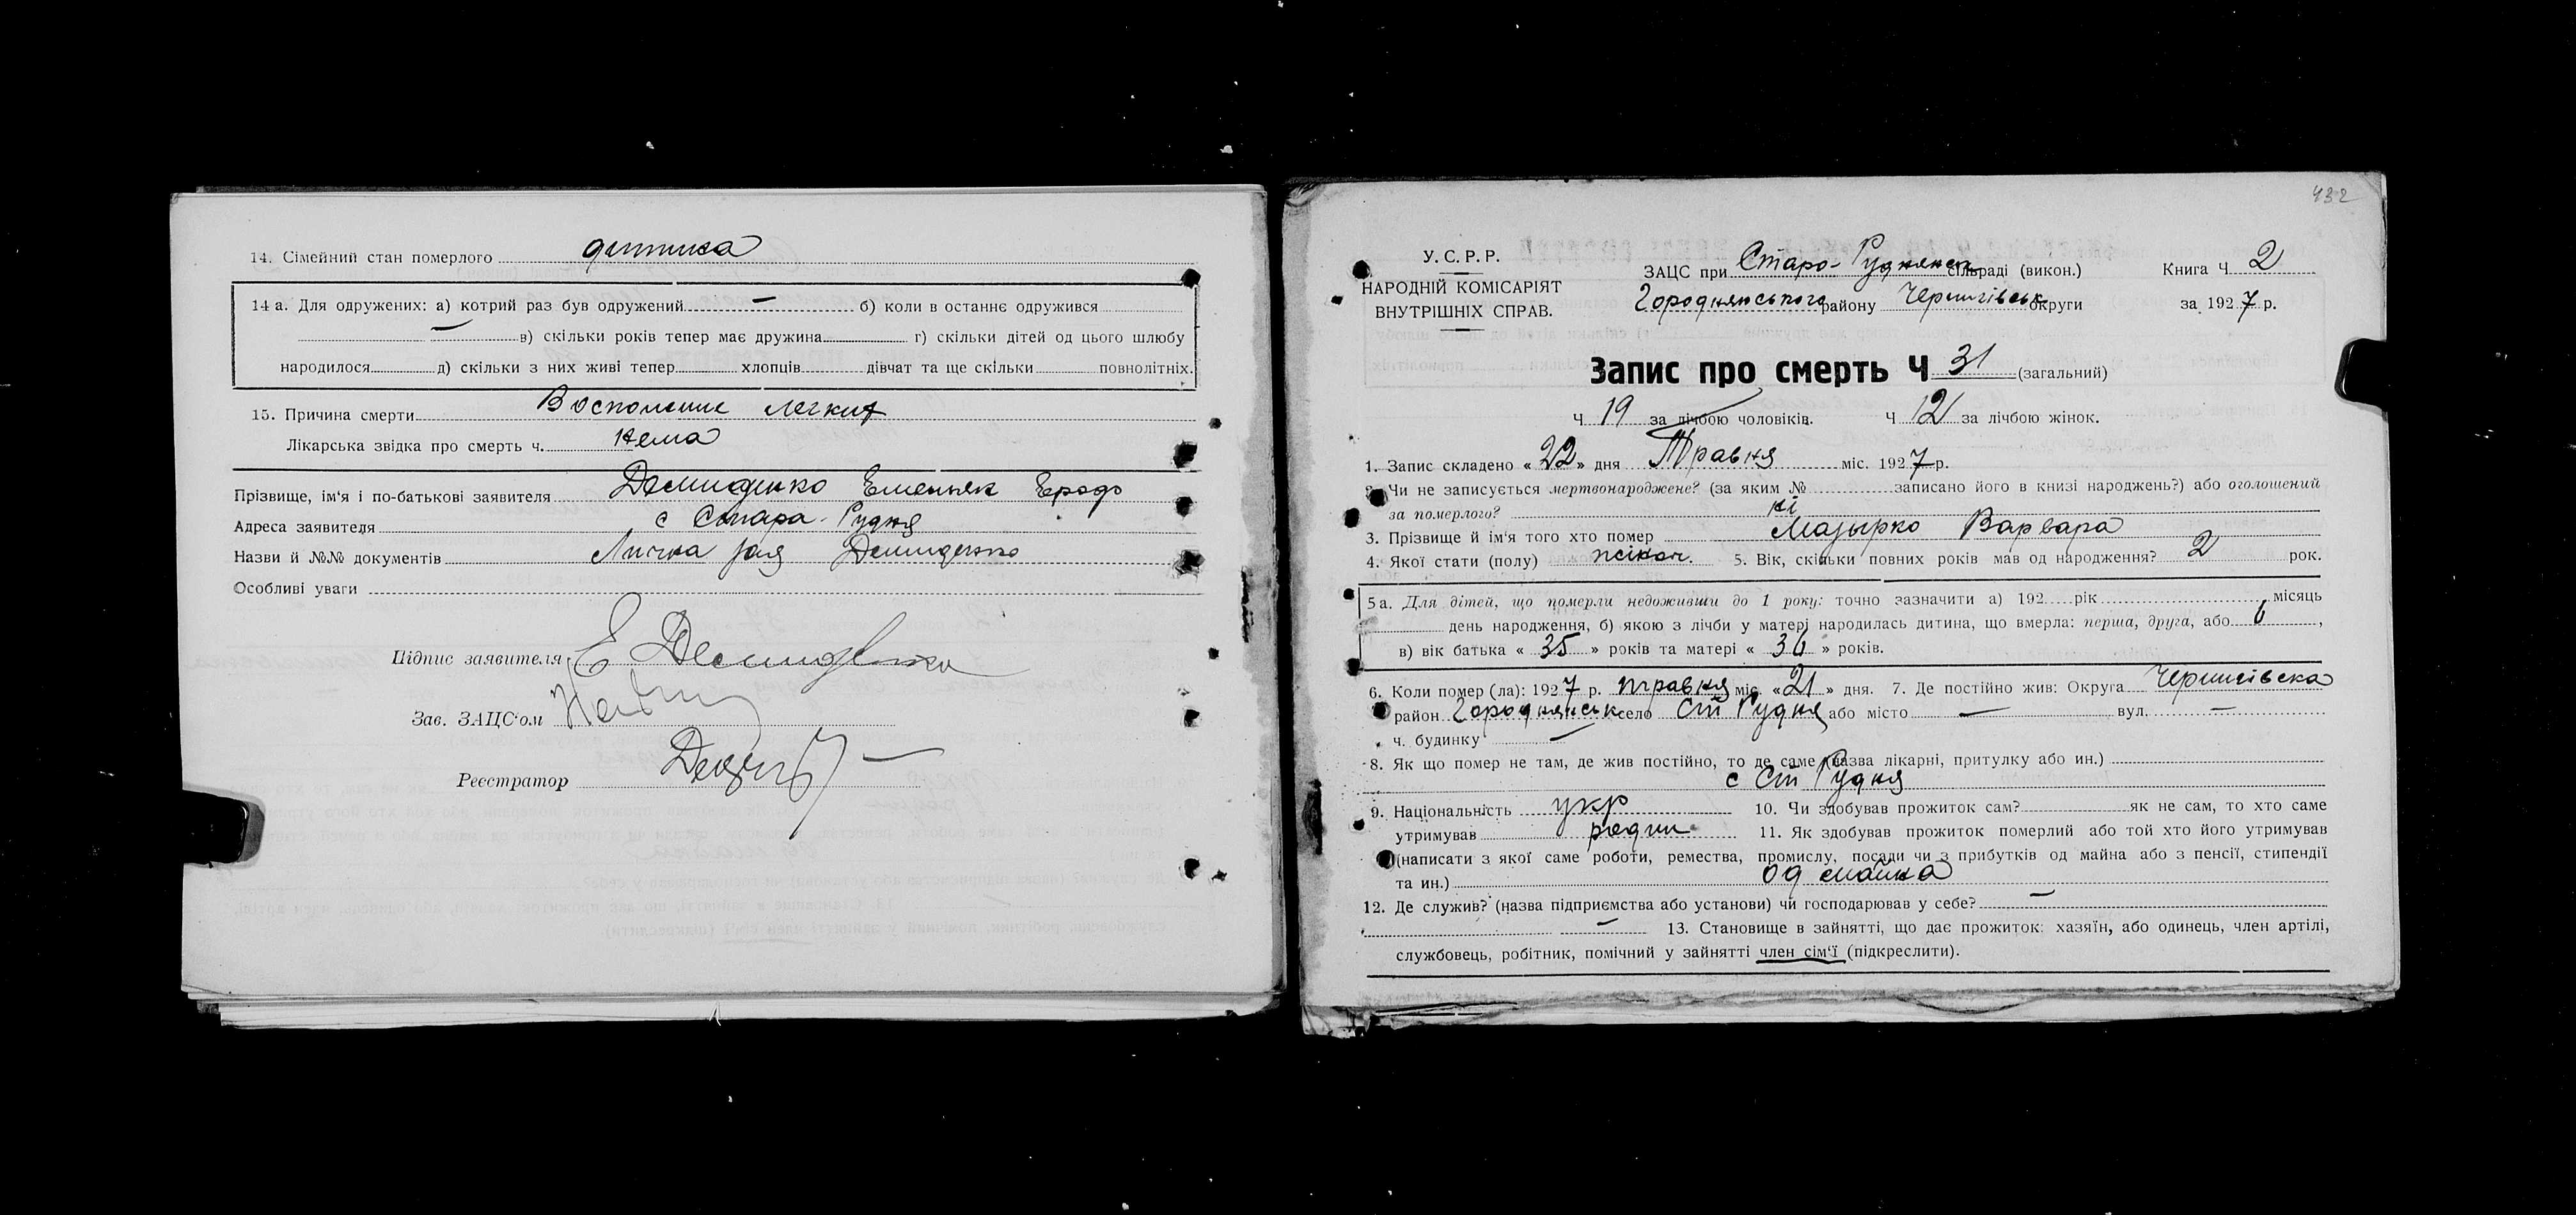 14. Сімейний стан померлого дитина
14 а. Для одружених: а) котрий раз був одружений — б) коли в останнє одружився
— в) скільки років тепер має дружина г) скільки дітей од цього шлюбу
народилося д) скільки з них живі тепер хлопців дівчат та ще скільки повнолітніх.
15. Причина смерти Восполение легких
Лікарська звідка про смерть ч. нема
Прізвище, ім'я і по-батькові заявителя Демиденко
Адреса заявителя с Стара-Рудня
Назви й №№ документів Лична Демиденко
Особливі уваги
Підпис заявителя Е Демиденко
Зав. ЗАЦС'ом
Реєстратор
432
У. С. Р. Р.
НАРОДНІЙ КОМІСАРІЯТ
ВНУТРІШНІХ СПРАВ.
ЗАЦС при Старо-Руднянск сільраді (викон.) Книга Ч 2
Городнянського району Чернигівськ округи за 1927 р.
Запис про смерть Ч 31 (загальний)
Ч 19 за лічбою чоловіків. Ч 12 за лічбою жінок.
1. Запис складено « 22 » дня Травня міс. 1927 р.
2. Чи не записується мертвонароджене? (за яким № записано його в книзі народжень?) або оголошений
за померлого? ні
3. Прізвище й ім'я того хто помер Мазырко Варвара
4. Якої стати (полу) жіноч. 5. Вік, скільки повних років мав од народження? 2 рок.
5 а. Для дітей, що померли недоживши до 1 року: точно зазначити а) 192 рік місяць
день народження, б) якою з лічби у матері народилась дитина, що вмерла: перша, друга, або 6 ,
в) вік батька « 35 » років та матері « 36 » років.
6. Коли помер (ла): 1927 р. травня міс. « 21 » дня. 7. Де постійно жив: Округа Чернигівска
район Городнянськ село Ст Рудня або місто — вул. —
ч. будинку —
8. Як що помер не там, де жив постійно, то де саме (назва лікарні, притулку або ин.)
с Ст Рудня
9. Національність укр 10. Чи здобував прожиток сам? як не сам, то хто саме
утримував родин 11. Як здобував прожиток померлий або той хто його утримував
(написати з якої саме роботи, ремества, промислу, посади чи з прибутків од майна або з пенсії, стипендії
та ин.) од майна
12. Де служив? (назва підприємства або установи) чи господарював у себе? —
— 13. Становище в зайнятті, що дає прожиток: хазяїн, або одинець, член артілі,
службовець, робітник, помічний у зайнятті член сім'ї (підкреслити).